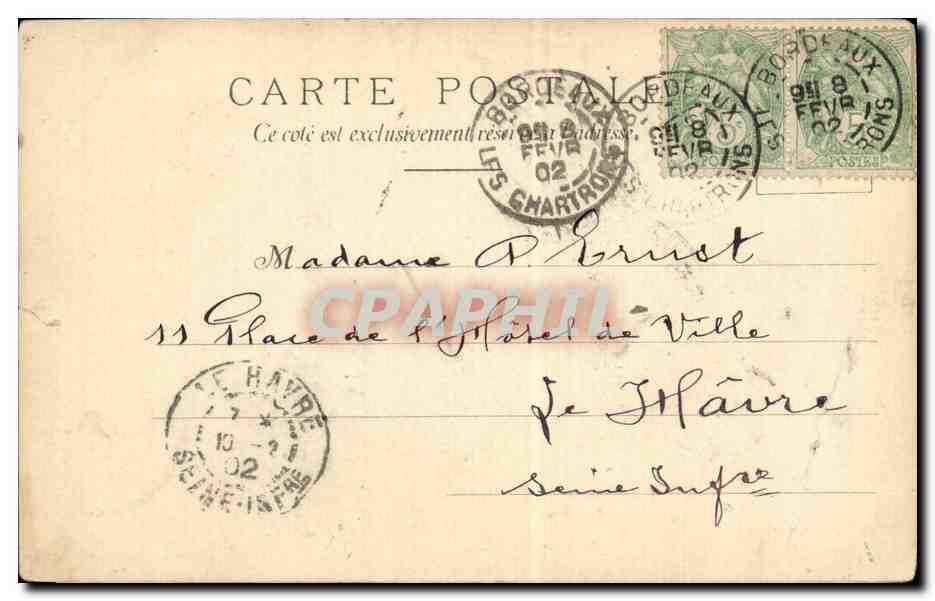 CARTE POSTALE
Ce coté est exclusivement réservé à l'adresse
BORDEAUX
8
FEVR
02
LES CHARTRONS
BORDEAUX
8
FEVR
02
CHARTRONS
BORDEAUX
8
FEVR
02
RONS
5
POSTES
Madame P. Ernst
CPAPHIL
11 Place de l'Hôtel de Ville
Le Hâvre
Seine Infre
LE HAVRE
7 *
10 -2
02
SEINE-INFRE